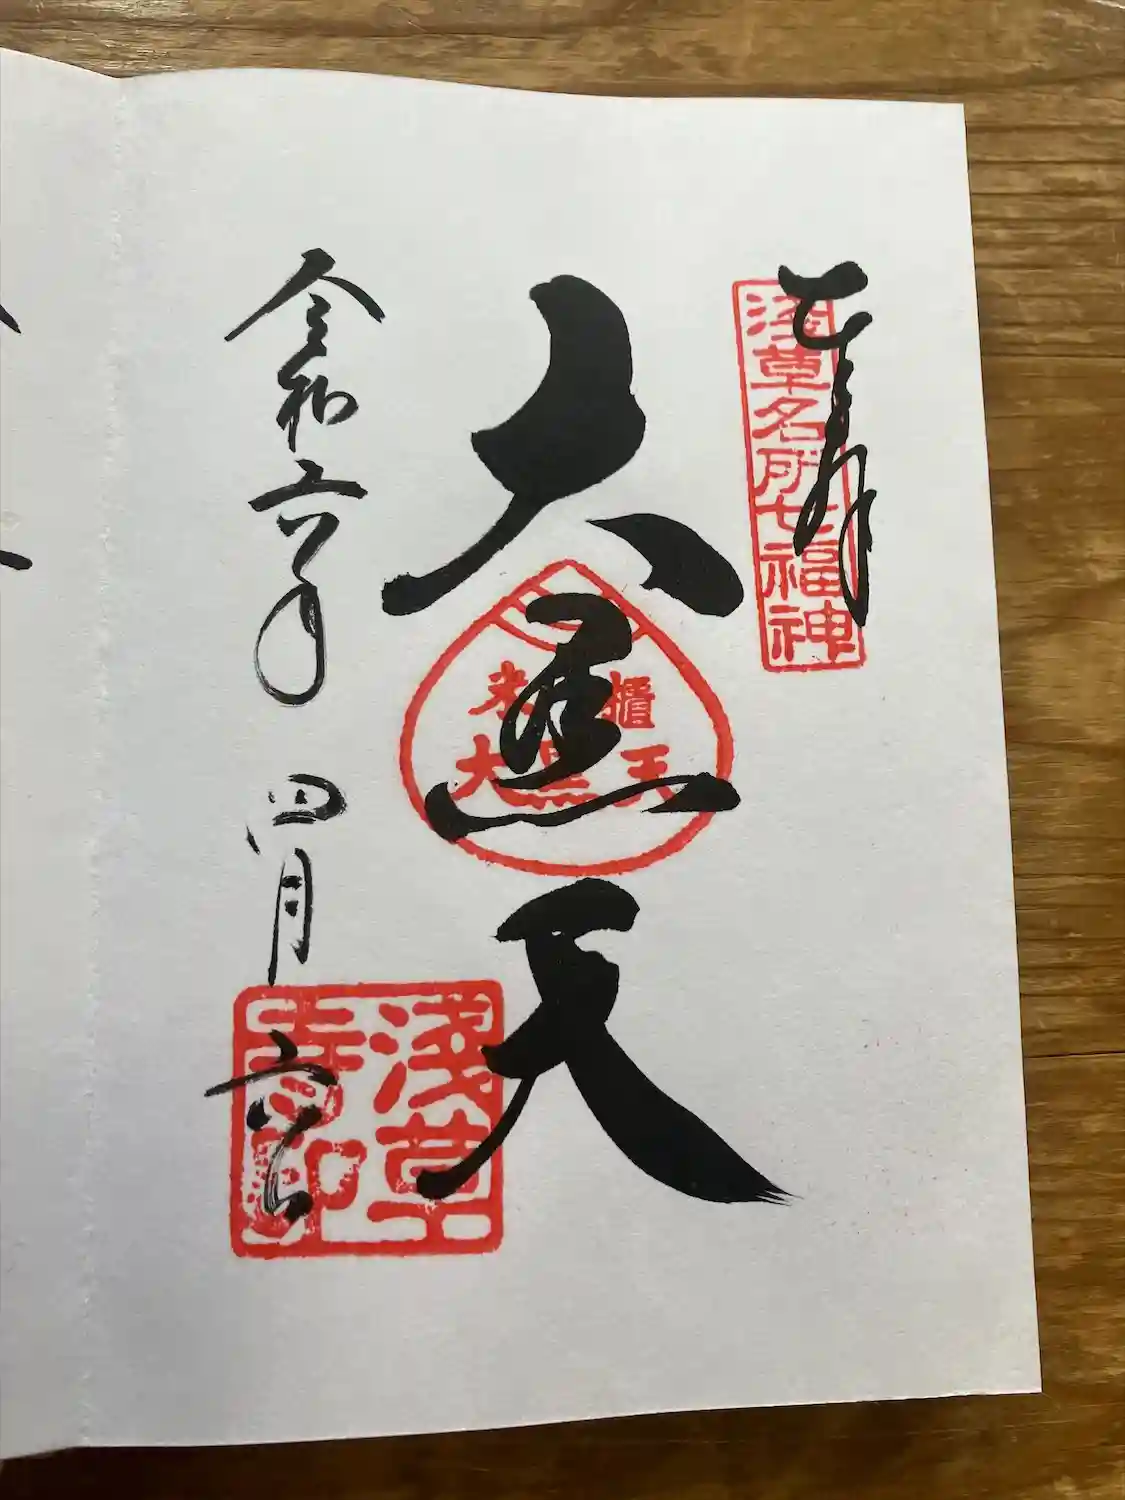 奉拝
浅草名所七福神
大黒天
米櫃
大黒天
令和六年四月六日
浅草
寺印